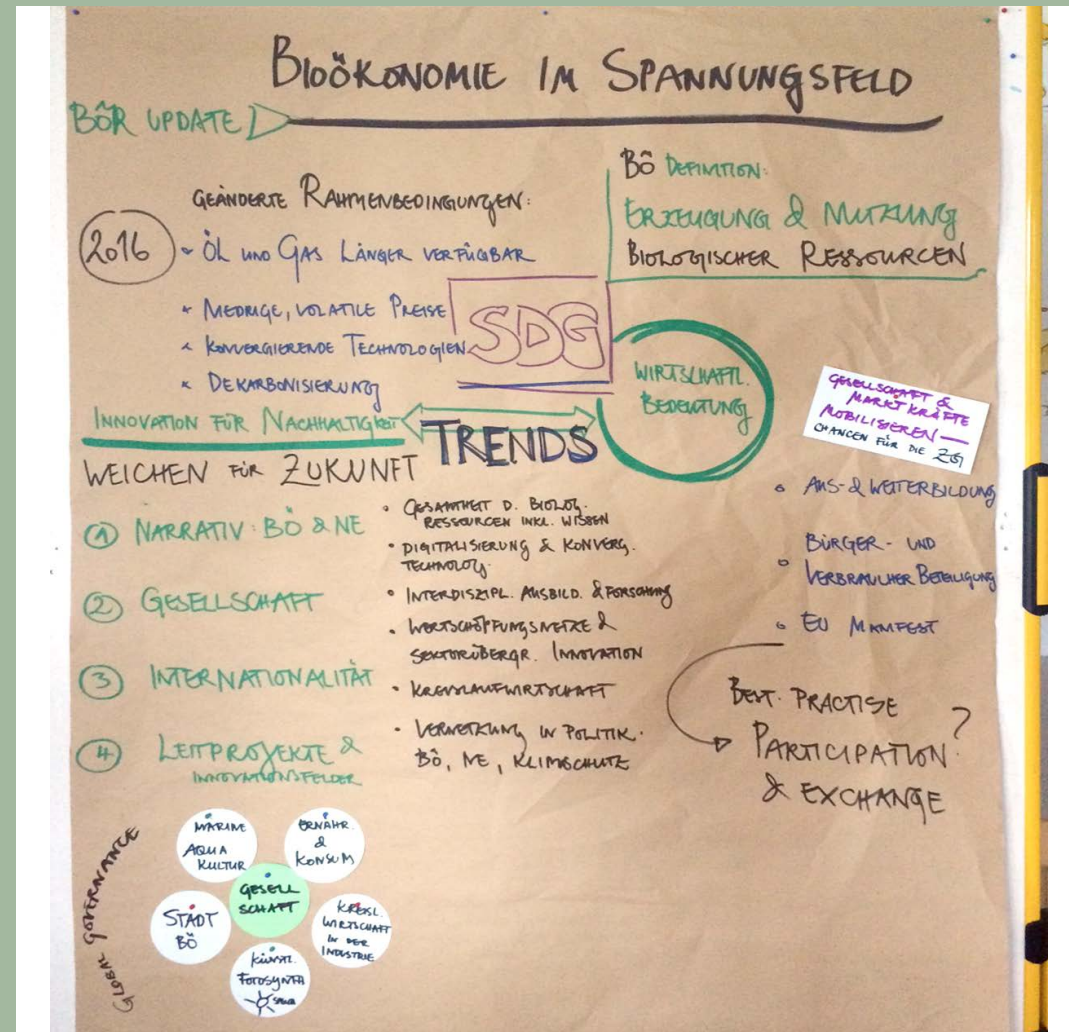 BIOÖKONOMIE IM SPANNUNGSFELD
BÖR UPDATE
BÖ DEFINITION:
ERZEUGUNG & NUTZUNG
BIOLOGISCHER RESSOURCEN
GEÄNDERTE RAHMENBEDINGUNGEN:
2016
- ÖL UND GAS LÄNGER VERFÜGBAR
* NIEDRIGE, VOLATILE PREISE
* KONVERGIERENDE TECHNOLOGIEN
* DEKARBONISIERUNG
SDG
WIRTSCHAFTL.
BEDEUTUNG
INNOVATION FÜR NACHHALTIGKEIT
TRENDS
GESELLSCHAFT &
MARKTKRÄFTE
MOBILISIEREN —
CHANCEN FÜR DIE ZG
WEICHEN FÜR ZUKUNFT
① NARRATIV: BÖ & NE
② GESELLSCHAFT
③ INTERNATIONALITÄT
④ LEITPROJEKTE &
INNOVATIONSFELDER
• GESAMTHEIT D. BIOLOG.
RESSOURCEN INKL. WISSEN
• DIGITALISIERUNG & KONVERG.
TECHNOLOG.
• INTERDISZIPL. AUSBILD. & FORSCHUNG
• WERTSCHÖPFUNGSNETZE &
SEKTORÜBERGR. INNOVATION
• KREISLAUFWIRTSCHAFT
• VERNETZUNG IN POLITIK.
BÖ, NE, KLIMASCHUTZ
o AUS- & WEITERBILDUNG
o BÜRGER- UND
VERBRAUCHER BETEILIGUNG
o EU MANIFEST
BEST. PRACTISE
PARTICIPATION ?
& EXCHANGE
GLOBAL GOVERNANCE
MARINE
AQUA
KULTUR
ERNÄHR.
&
KONSUM
GESELL
SCHAFT
STADT
BÖ
KREISL.
WIRTSCHAFT
IN DER
INDUSTRIE
KÜNSTL.
FOTOSYNTH